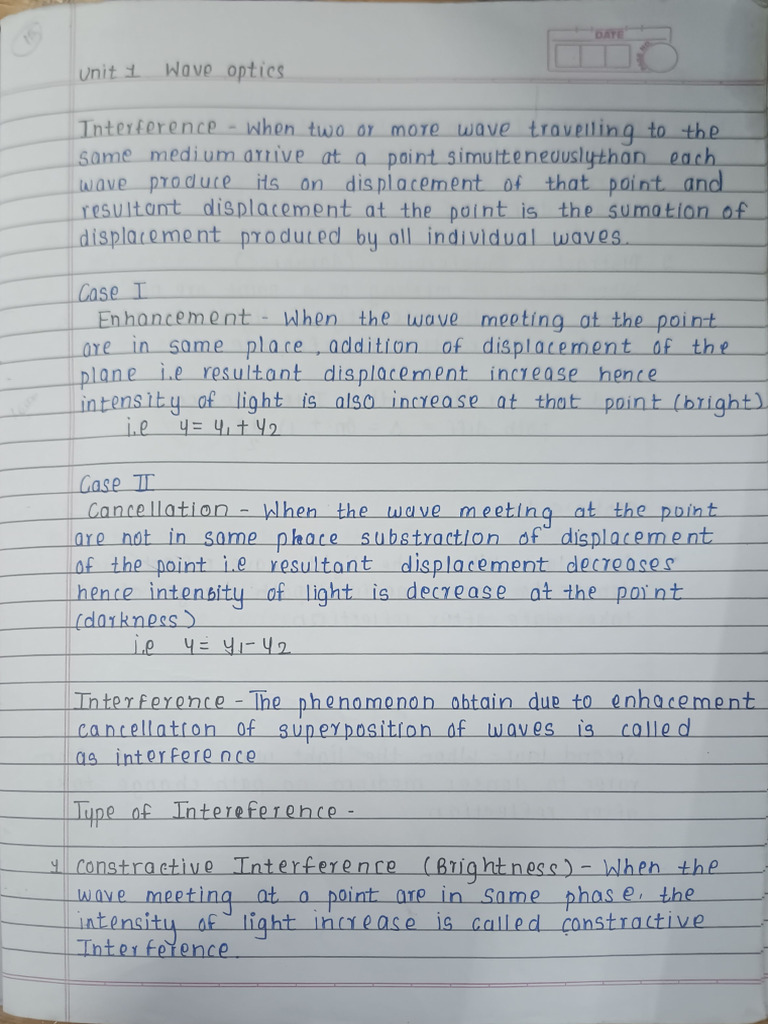 DATE
Unit 1 Wave optics
Interference - When two or more wave travelling to the
same medium arrive at a point simulteneouslythan each
wave produce its on displacement of that point and
resultant displacement at the point is the sumation of
displacement produced by all individual waves.
Case I
Enhancement - When the wave meeting at the point
are in same place, addition of displacement of the
plane i.e resultant displacement increase hence
intensity of light is also increase at that point (bright)
i.e y = y1 + y2
Case II
Cancellation - When the wave meeting at the point
are not in same phace substraction of displacement
of the point i.e resultant displacement decreases
hence intensity of light is decrease at the point
(darkness)
i.e y = y1 - y2
Interference - The phenomonon obtain due to enhacement
cancellation of superposition of waves is called
as interference
Type of Intereference -
1 Constractive Interference (Brightness) - When the
wave meeting at a point are in same phase, the
intensity of light increase is called constractive
Interference.